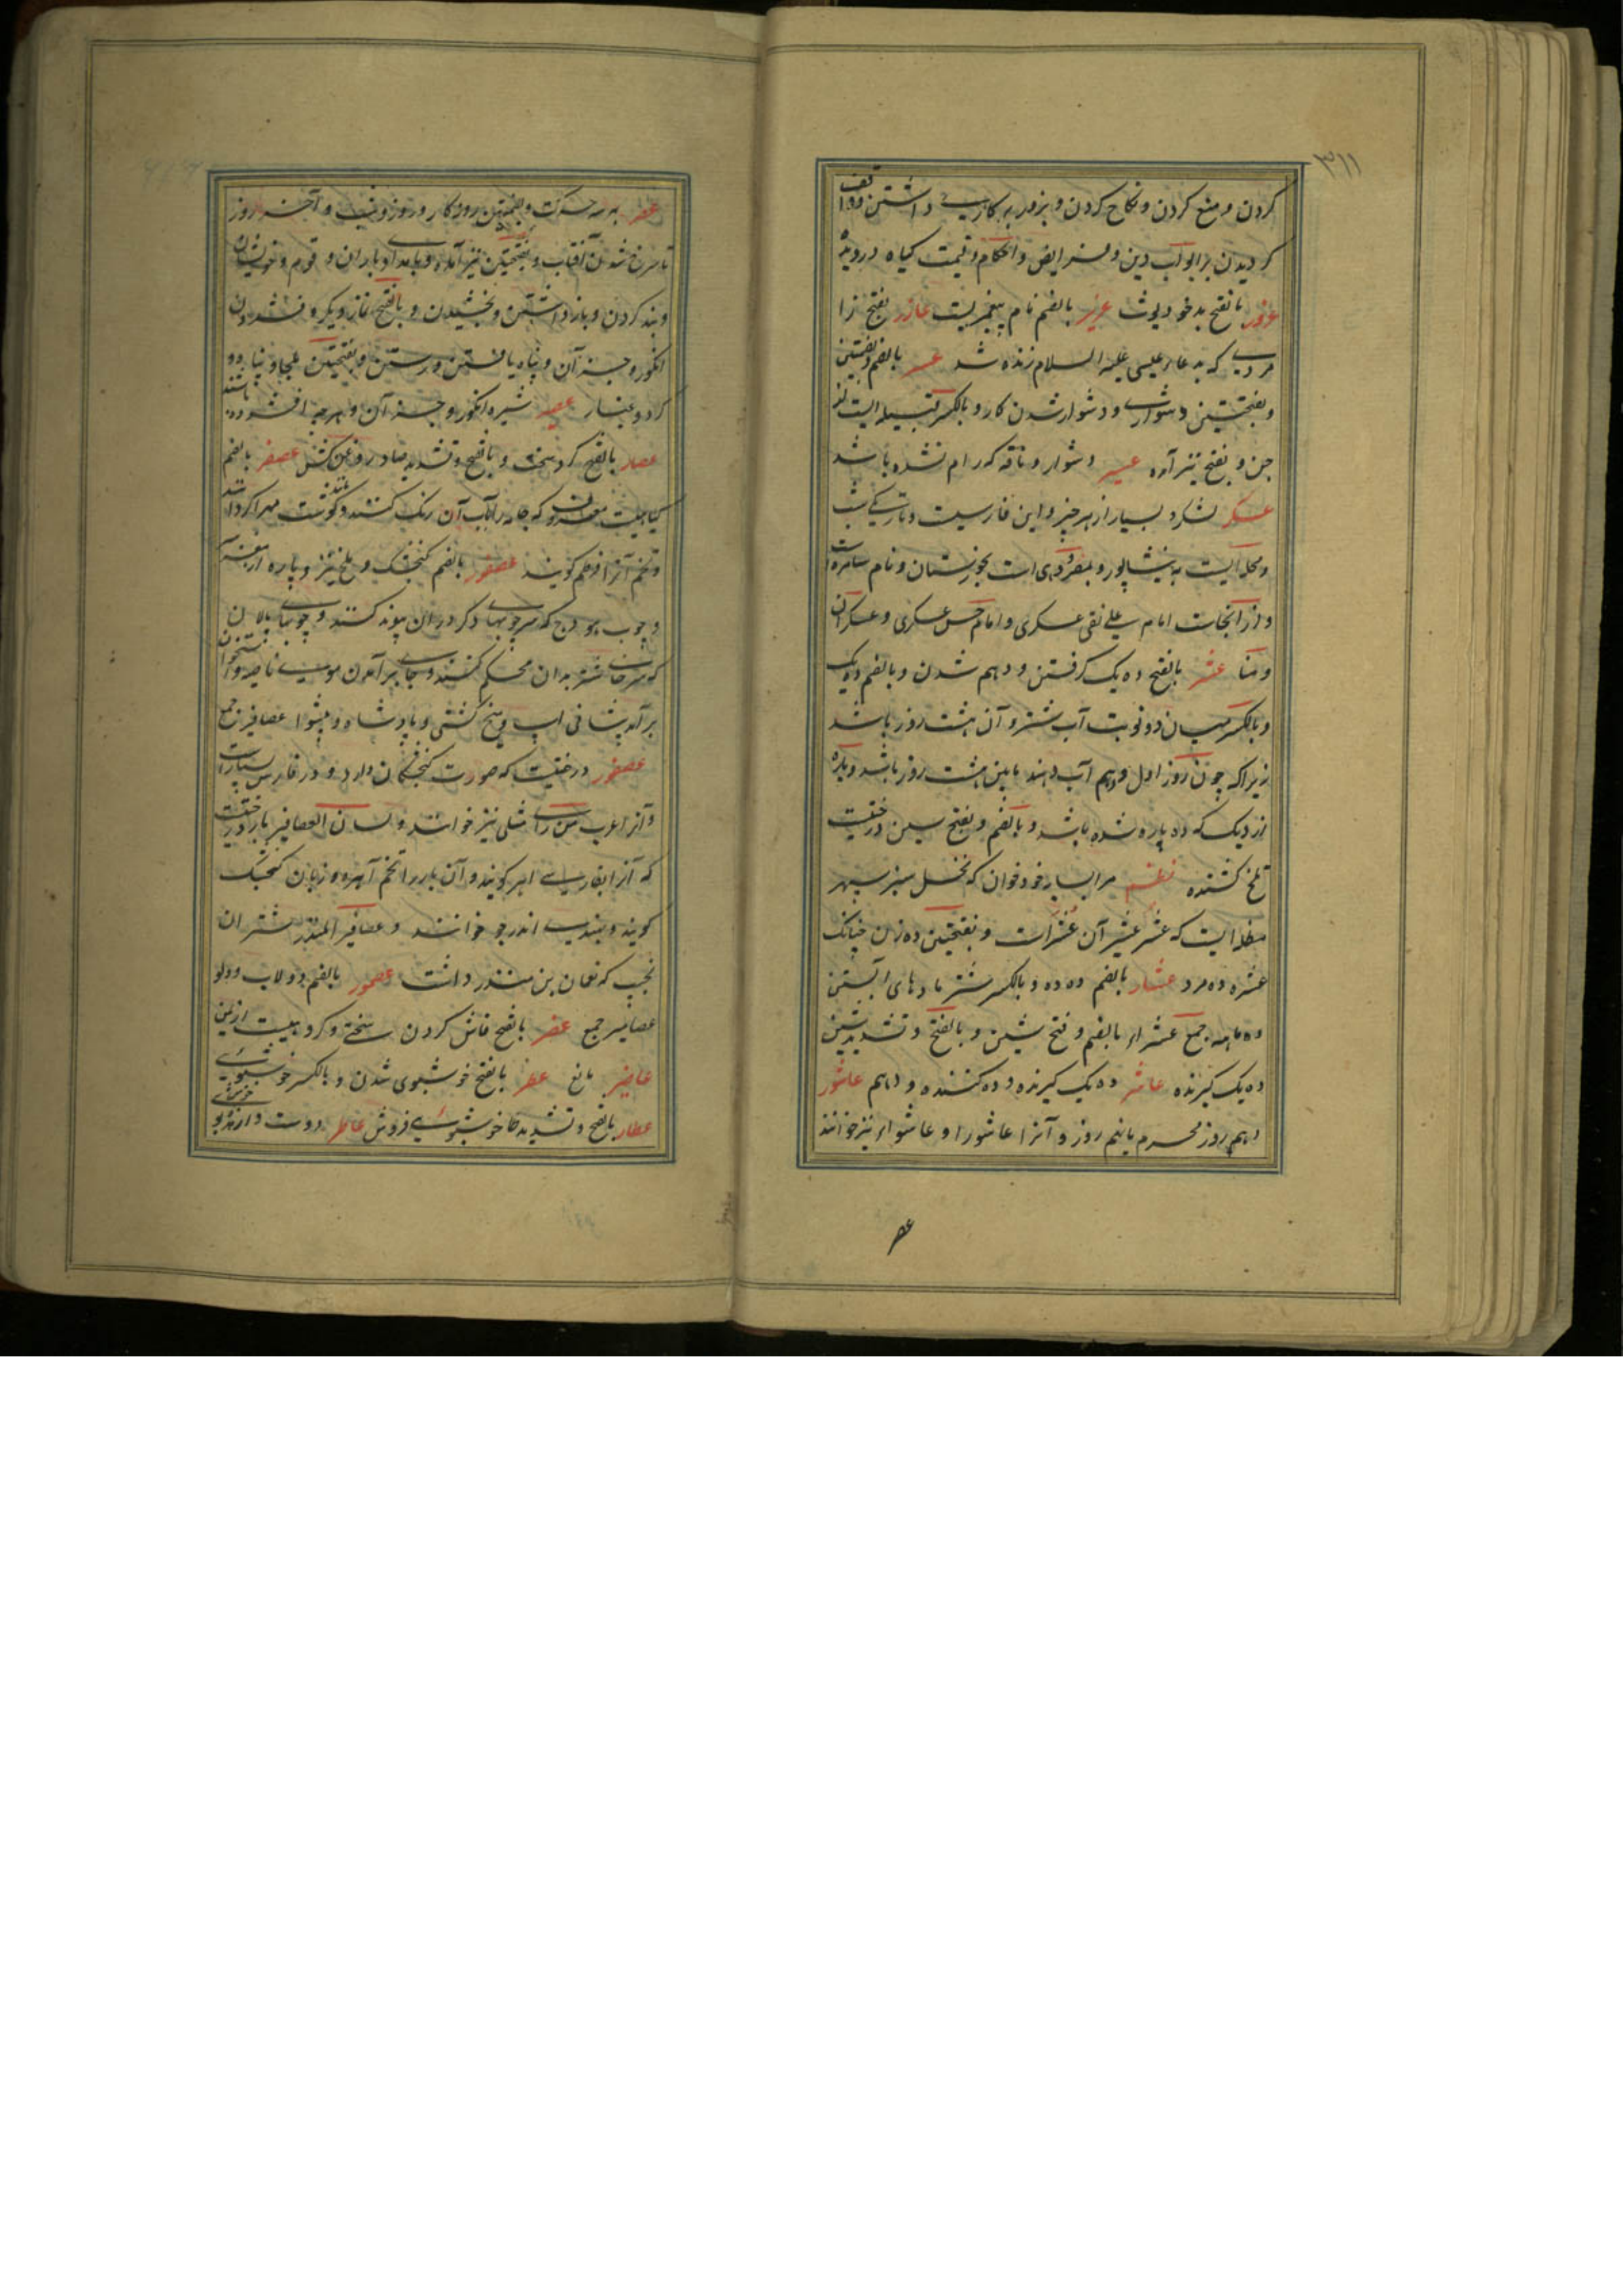 ۳۱۱
کردن و منع کردن و نکاح کردن و بزور به کاری داشتن و واقف
کردیدن بر ابواب دین و فرایض و احکام و قیمت کیاه درویده
عزور بالفتح بدخو و دیوث عزیر بالضم نام پیغمبریست عازر بفتح زا
مردی که بدعاء عیسی علیه السلام زنده شد عسر بالضم و بضمتین
و بفتحتین دشواری و دشوار شدن کار و بالکسر قبیله ایست از
جن و بفتح نیز آمده عسیر دشوار و ناقه که رام نشده باشد
عسکر لشکر و بسیار از هر چیز و این فارسیست و تاریکی شب
و محله ایست به نیشاپور و بمصر و دهی است بخوزستان و نام سامره است
و از آنجاست امام علی نقی عسکری و امام حسن عسکری و عسکران
و منا عشر بالفتح ده یک کرفتن و دهم شدن و بالضم ده یک
و بالکسر میان دو نوبت آب شتر و آن هشت روز باشد
زیرا که چون روز اول و دهم آب دهند مابین هشت روز باشد و پاره
از دیک که ده پاره شده باشد و بالضم و بفتح سین درختیست
تلخ کشنده مرا بسایه خود خوان که نخل سبز سپهر
مظله ایست که عشر عشیر آن عشر است و بفتحتین ده زن چنانکه
عشره ده مرد عشار بالضم ده ده و بالکسر شتر مادهای آبستن
ده ماهه جمع عشراء بالضم و فتح شین و بالفتح و تشدید شین
ده یک کیرنده عاشر ده یک کیرنده و ده کننده و دهم عاشور
دهم روز محرم یا نهم روز و آنرا عاشورا و عاشوراء نیز خوانند
عصر
عصر به سه حرکت و بضمتین روزکار و روز و شب و آخر روز
تا سرخ شدن آفتاب و بفتحتین نیز آمده و بامداد و باران و قوم و خویشان
و بند کردن و باز داشتن و بخشیدن و بالفتح نماز دیکر و فشردن
انکور و جز آن و پناه یافتن و رستن و بفتحتین ملجا و پناه و
کرد و غبار عصیر شیره انکور و جز آن و هر چه افشرده باشند
عصار بالفتح کرد سخت و بالفتح و تشدید صاد روغن کش عصفر بالضم
کیاهیست معروف که جامه را بآب آن رنک کنند و کوشت مهرا کرداند
و تخم آنرا قرطم کویند عصفور بالضم کنجشک و ملخ نیز و پاره از مغز سر
و چوب هودج که سر چوبهای دکر در آن پیوند کنند و چوبهای پالان
که سرهاش بدان محکم کنند و جای برآمدن موی ناصیه و استخوان
برآمد پیشانی اسپ و میخ کشتی و پادشاه و پیشوا عصافیر جمع
عصفور درختیست که صورت کنجشکان دارد و در فارس بسیار است
و آنرا عرب من رای مثلی نیز خوانند و لسان العصافیر بار درختیست
که آنرا بفارسی اهر کویند و آن بار را تخم اهر و زبان کنجشک
کویند و بهندی اندرجو خوانند و عصافیر المنذر شتران
نجیب که نعمان بن منذر داشت عصمور بالضم دولاب و دلو
عصامیر جمع عضر بالفتح فاش کردن سختی و کروهیست از یمن
عاضر مانع عطر بالفتح خوشبوی شدن و بالکسر خوشبوئی
عطار بالفتح و تشدید طا خوشبوئی فروش عاطر دوست دارنده بوی خوش